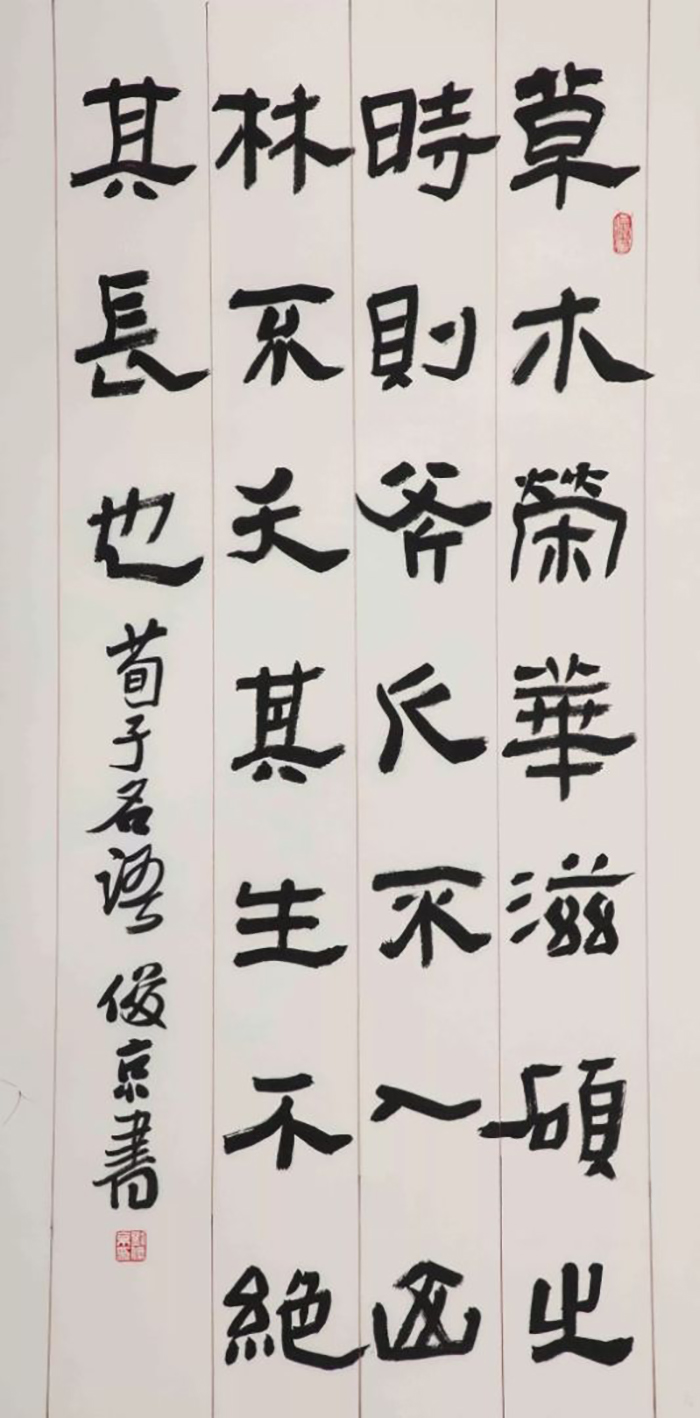 草木榮華滋碩之
時則斧斤不入山
林不夭其生不絕
其長也荀子名語 俊京書